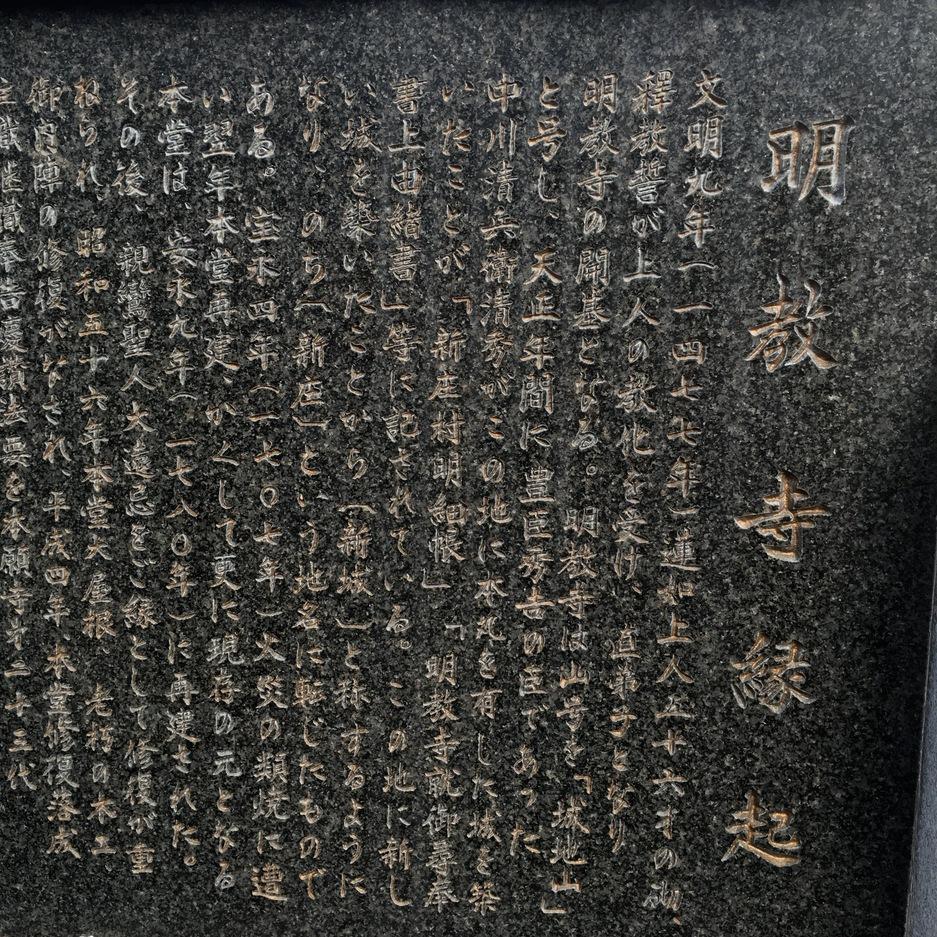 明教寺縁起
文明九年(一四七七年)蓮如上人五十六才の砌、
釋教誓が上人の教化を受け、直弟子となり
明教寺の開基となる。明教寺は山号を「城地山」
と号し、天正年間に豊臣秀吉の臣であった
中川清兵衛清秀がこの地に本丸を有した城を築
いたことが、「新庄村明細帳」「明教寺就御尋奉
書上由緒書」等に記されている。この地に新し
い城を築いたことから(新城)と称するように
なり、のち(新庄)という地名に転じたもので
ある。宝永四年(一七〇七年)火災の類焼に遭
い翌年本堂再建、かくして更に現存の元となる
本堂は、安永九年(一七八〇年)に再建された。
その後、親鸞聖人大遠忌をご縁として修復が重
ねられ、昭和五十六年本堂大屋根、老朽の木工
御内陣の修復がなされ、平成四年、本堂修復落成
住職継職奉告慶讃法要を本願寺才二十三代